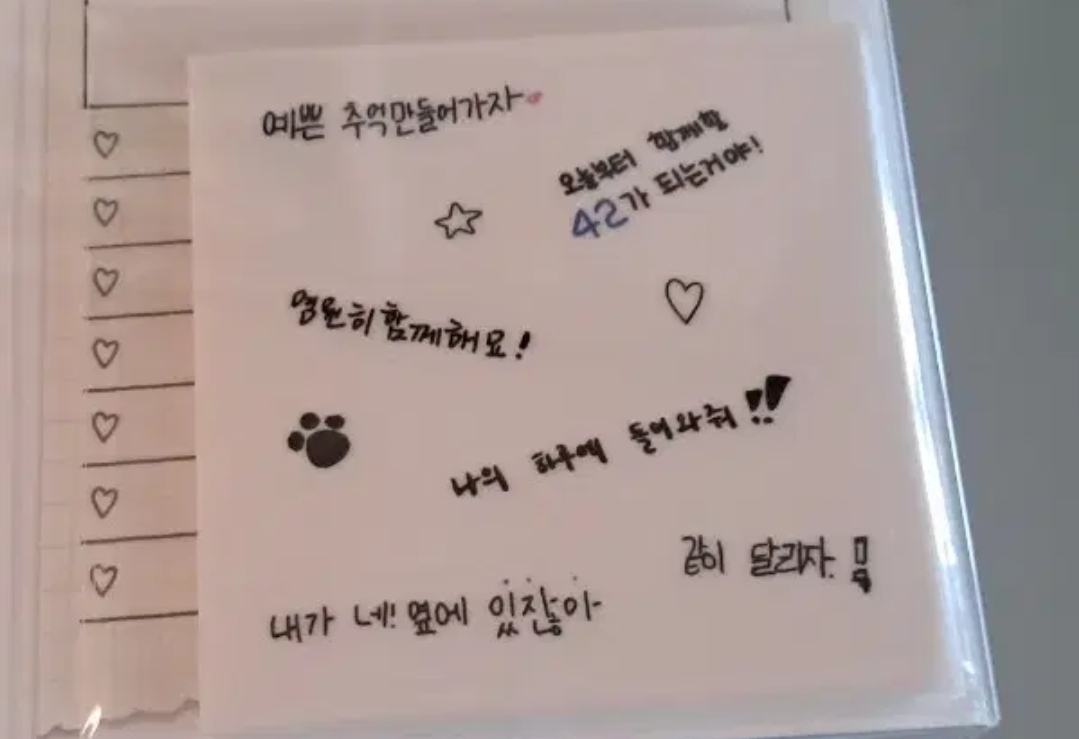 예쁜 추억만들어가자
오늘부터 함께할
42가 되는거야!
영원히함께해요!
나의 하루에 들어와줘!!
같이 달리자!
내가 네! 옆에 있잖아